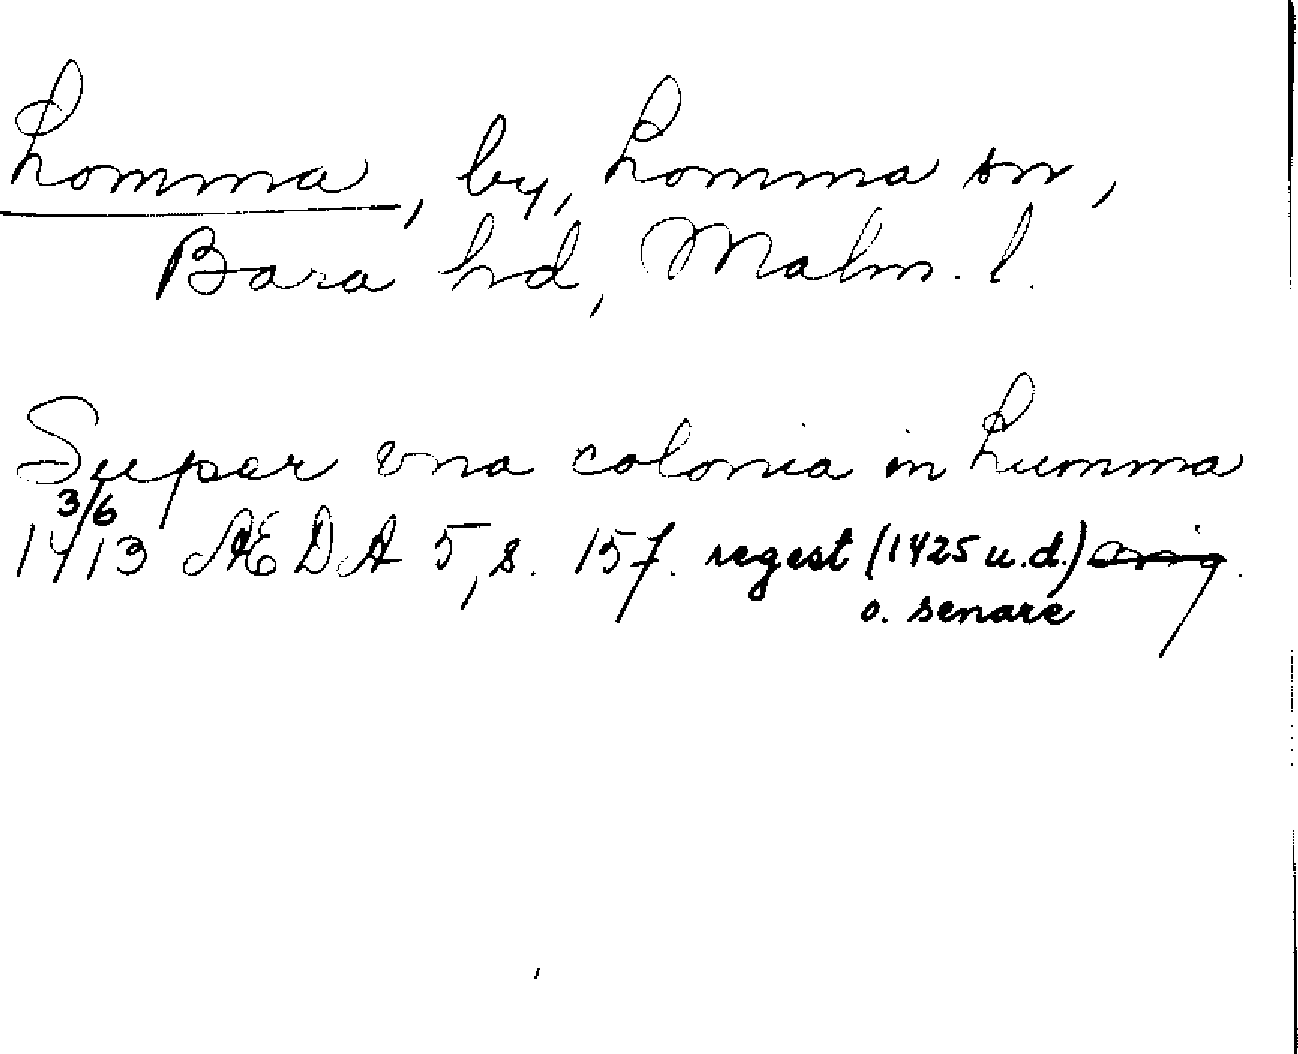 Lomma, by, Lomma sn,
Bara hd, Malm. l.
Super vna colonia in Lumma
3/6
1413 ÆDA 5, s. 157. regest (1425 u.d.) orig.
o. senare